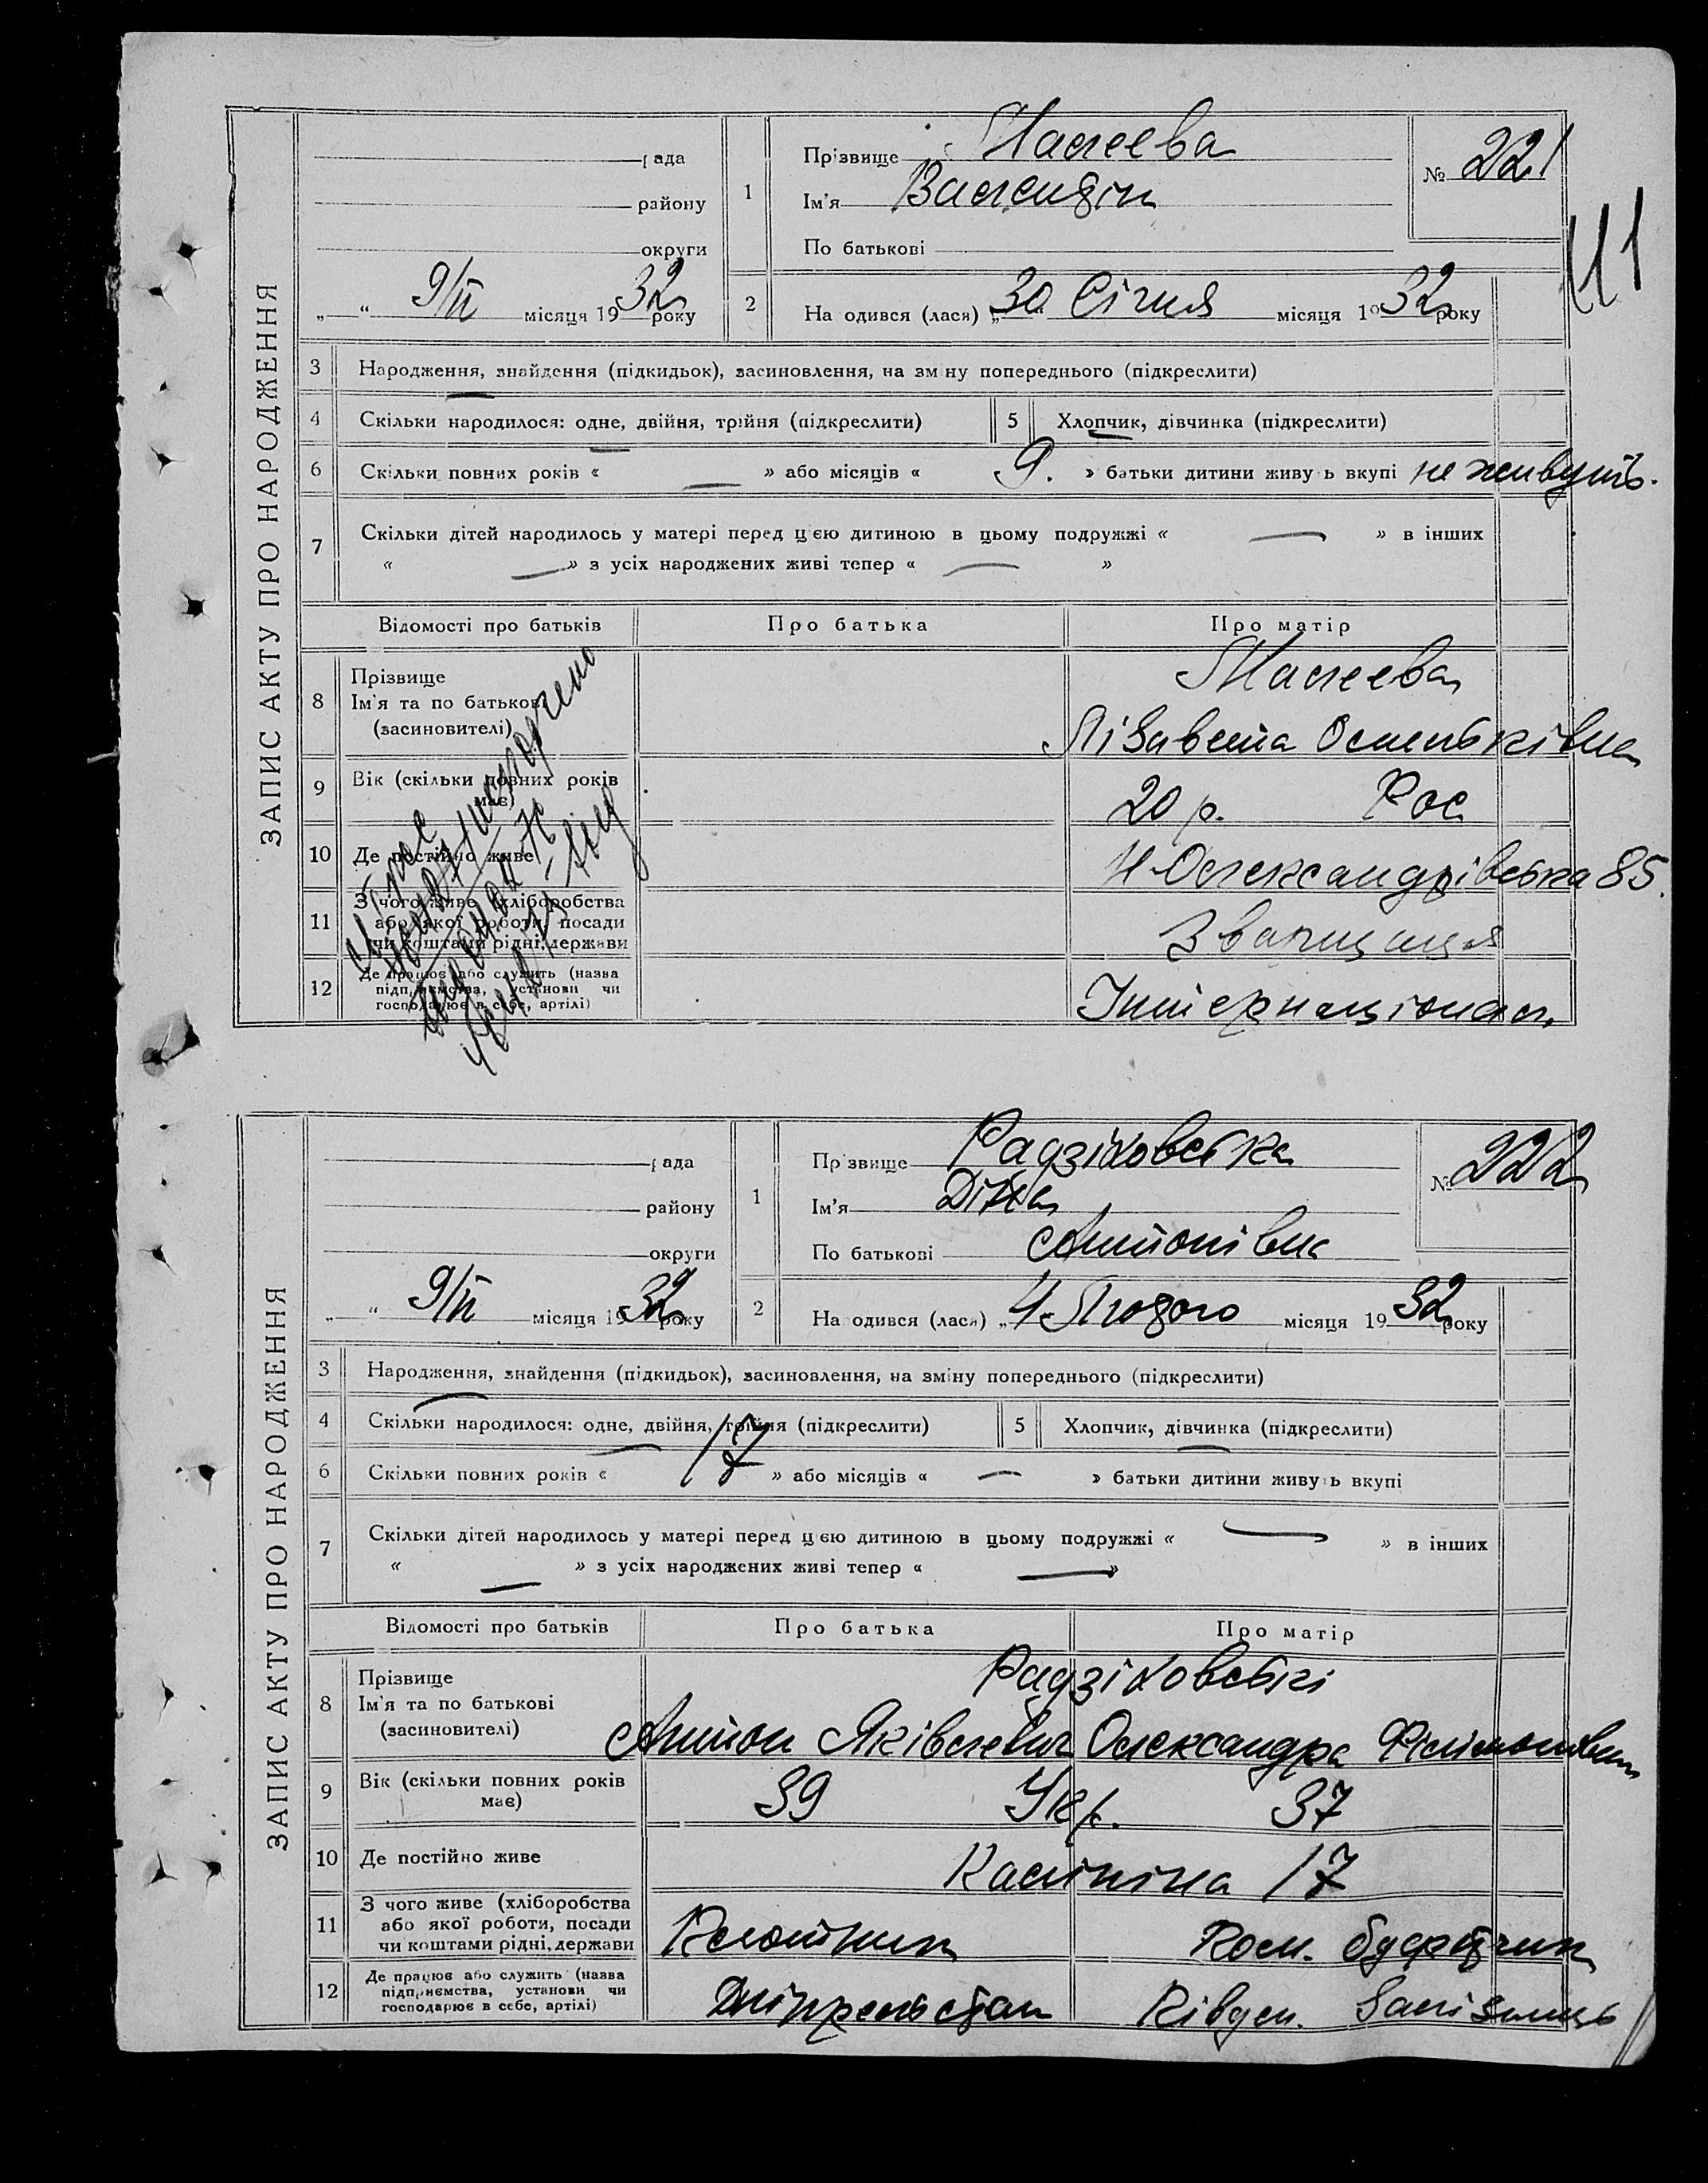 ЗАПИС АКТУ ПРО НАРОДЖЕННЯ
рада
району
округи
9/II місяця 1932 року
1 Прізвище
Ім'я Валендін
По батькові
№ 221
41
2 Народився (лася) „30 Січня місяця 1932 року
3 Народження, знайдення (підкидьок), засиновлення, на зміну попереднього (підкреслити)
4 Скільки народилося: одне, двійня, трійня (підкреслити) 5 Хлопчик, дівчинка (підкреслити)
6 Скільки повних років « — » або місяців « 9. » батьки дитини живуть вкупі не живуть.
7 Скільки дітей народилось у матері перед цією дитиною в цьому подружжі « — » в інших
« — » з усіх народжених живі тепер « — »
Відомості про батьків Про батька Про матір
8 Прізвище
Ім'я та по батькові Лізавета
(засиновителі)
9 Вік (скільки повних років має) 20 р. Рос
10 Де постійно живе Н Олександрівська 85.
11 З чого живе (хліборобства
або якої роботи, посади
чи коштами рідні, держави
12 Де працює або служить (назва
підприємства, установи чи
господарює в себе, артілі) Інтернаціонал.
ЗАПИС АКТУ ПРО НАРОДЖЕННЯ
рада
району
округи
9/II місяця 1932 року
1 Прізвище Радзіховська
Ім'я Діна
По батькові Антонівна
№ 222
2 Народився (лася) „4 Лютого місяця 1932 року
3 Народження, знайдення (підкидьок), засиновлення, на зміну попереднього (підкреслити)
4 Скільки народилося: одне, двійня, трійня (підкреслити) 5 Хлопчик, дівчинка (підкреслити)
6 Скільки повних років « 17 » або місяців « — » батьки дитини живуть вкупі
7 Скільки дітей народилось у матері перед цією дитиною в цьому подружжі « — » в інших
« — » з усіх народжених живі тепер « — »
Відомості про батьків Про батька Про матір
8 Прізвище Радзіховські
Ім'я та по батькові Антон Яківлевич Олександра Філімонівна
(засиновителі)
9 Вік (скільки повних років має) 39 Укр. 37
10 Де постійно живе Калініна 17
11 З чого живе (хліборобства
або якої роботи, посади
чи коштами рідні, держави
12 Де працює або служить (назва
підприємства, установи чи
господарює в себе, артілі) Дніпрельстан Півден. Залізниць